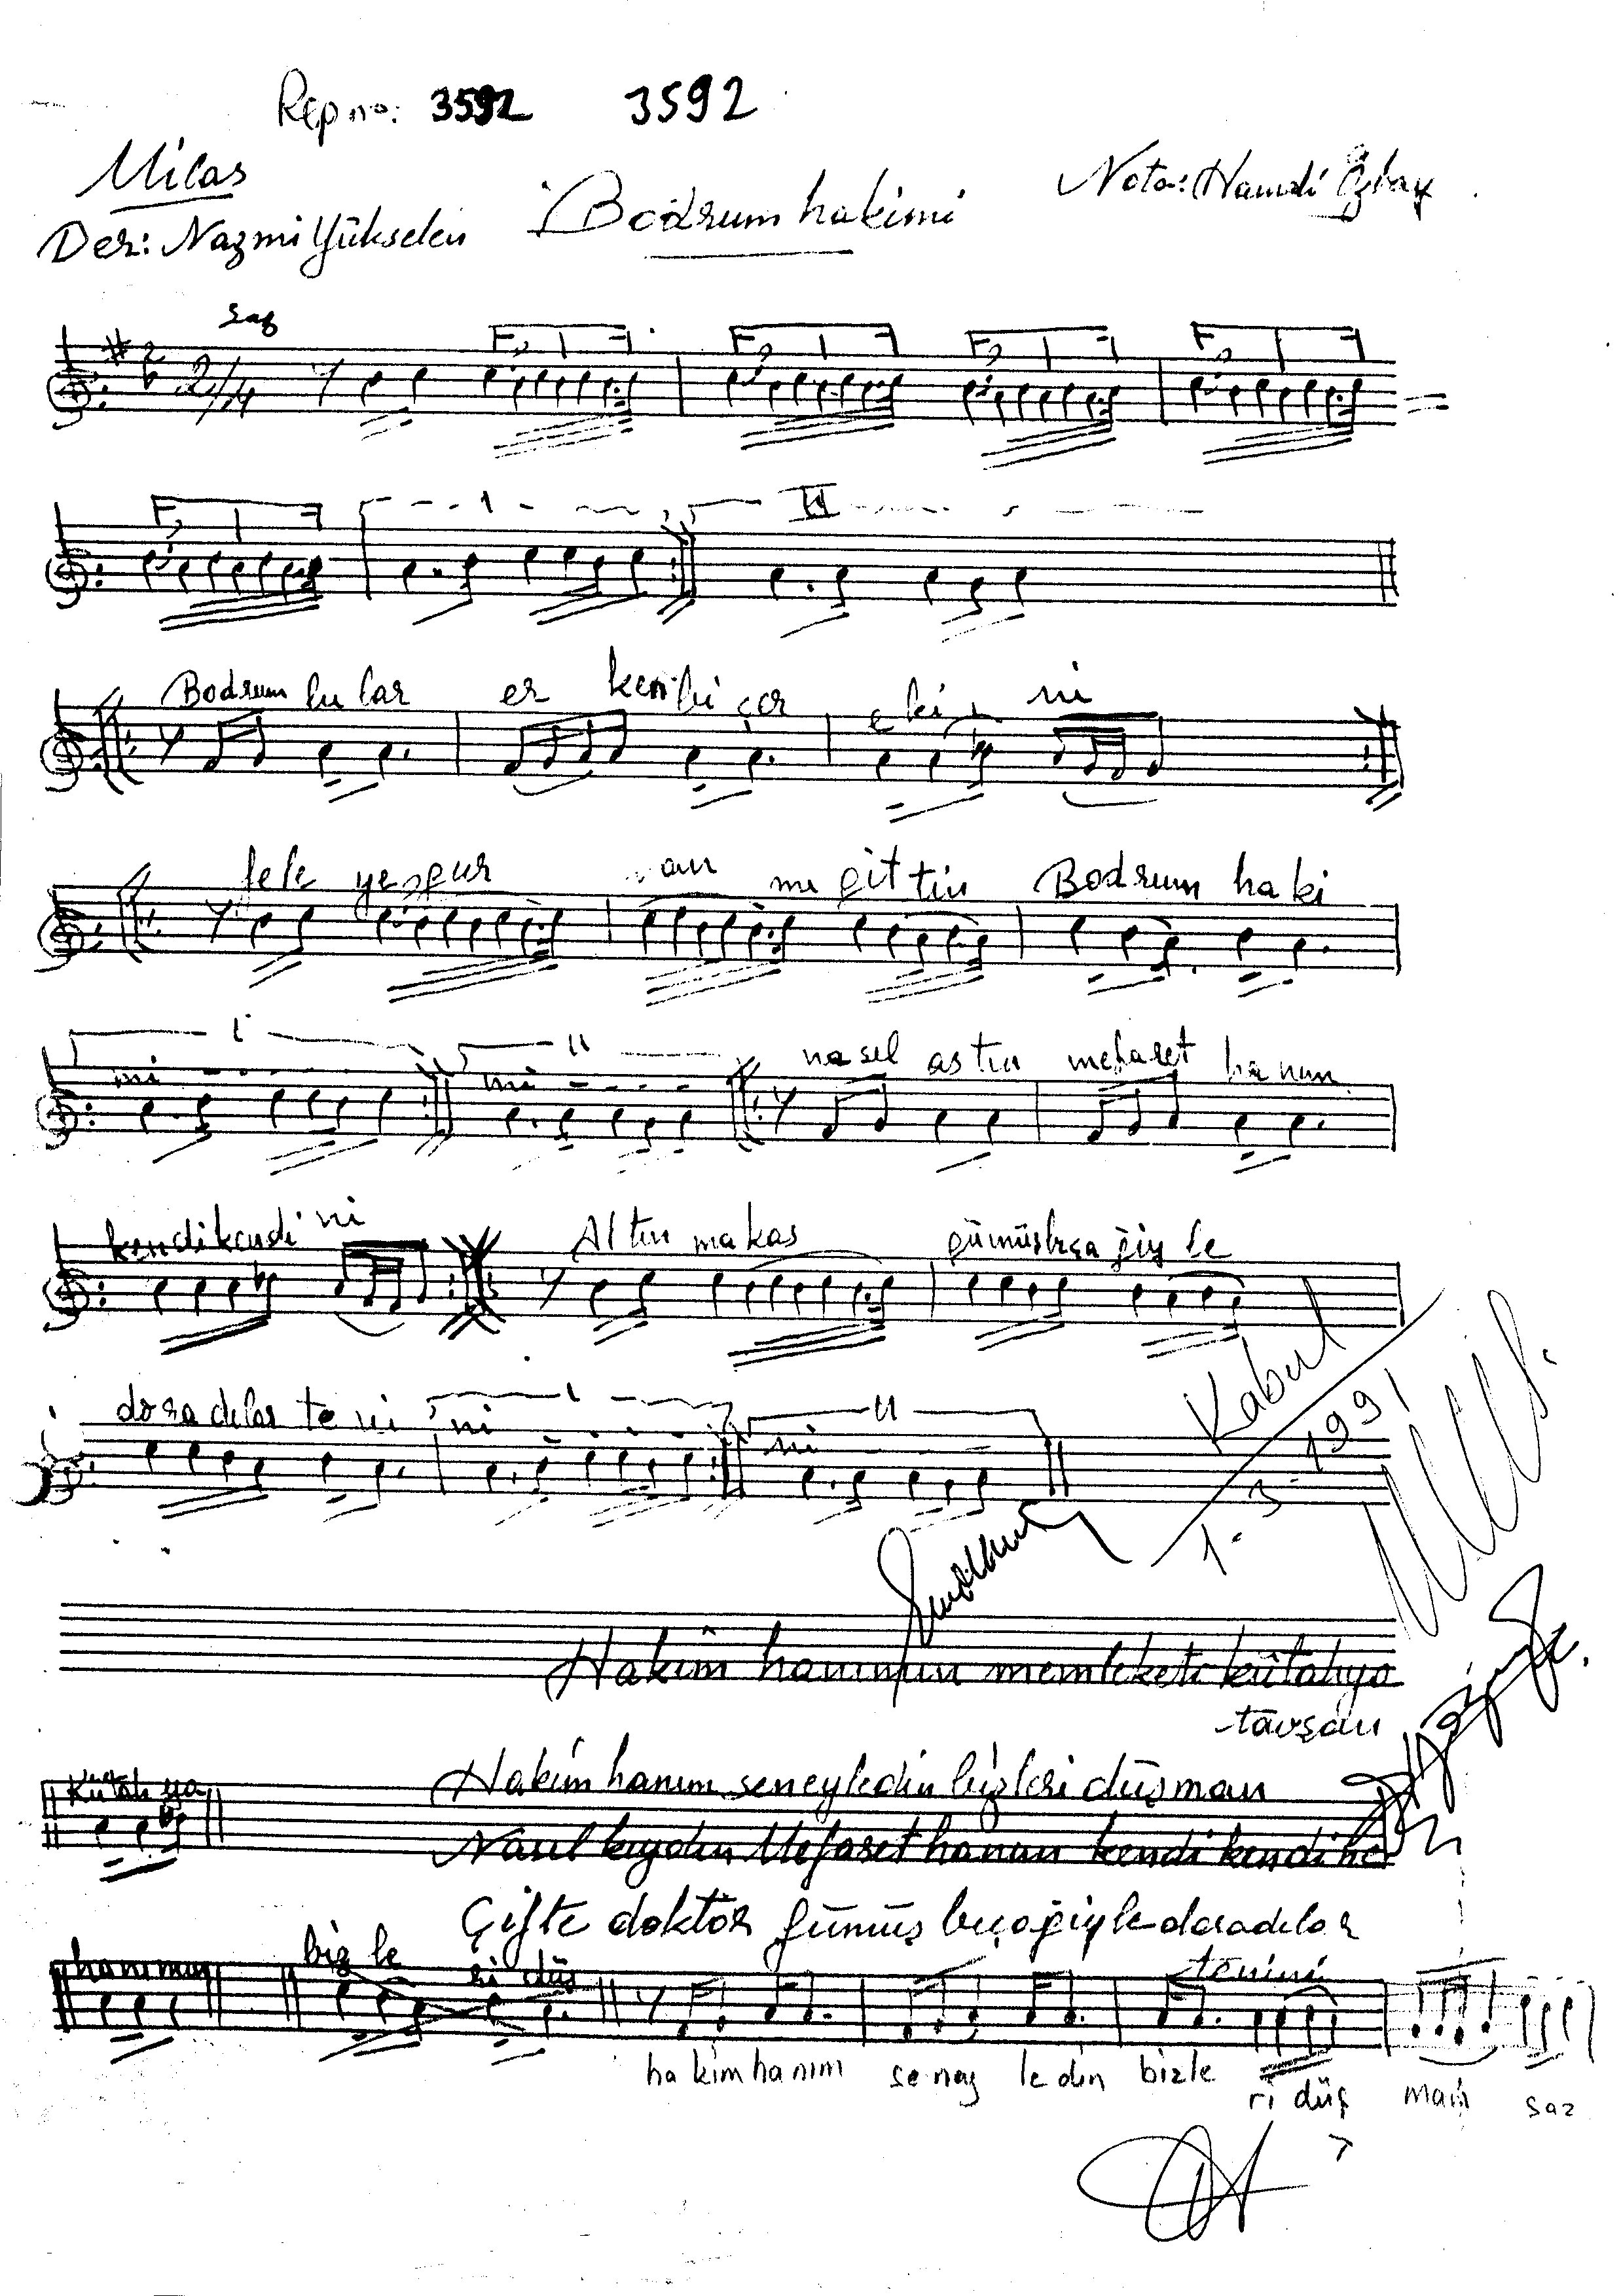 Rep no: 3592 3592
Milas
Nota: Hamdi Özbay
Der: Nazmi Yükselen
Bodrum hakimi
Saz
2/4
I II
Bodrum lu lar er ken bi çer e ki ni ni
fele ye mi git tin Bodrum ha ki
I II
mi mi na sıl as tın mefaret ha nım
kendi kendi ni Altın makas gümüş bıça ğiy le
doğra dılar te ni I ni II ni
Kabul
1-3-1991
Hakim hanımın memleketi Kütahya
tavşan
Kütah ya
Hakim hanım sen eyledin bizleri düşman
Nasıl kıydın Mefaret hanım kendi kendine
Çifte doktor gümüş bıçağiyle doradılar
tenini
hanımın biz le ri düş
ha kim ha nım se ney le din biz le ri düş man saz